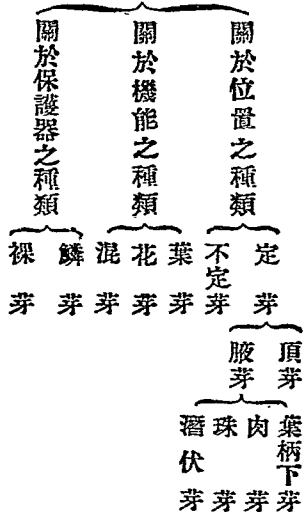 關於位置之種類
定芽
頂芽
腋芽
葉柄下芽
肉芽
珠芽
潛伏芽
不定芽
關於機能之種類
葉芽
花芽
混芽
關於保護器之種類
鱗芽
裸芽